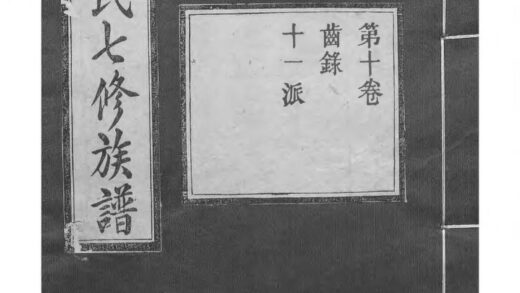 第十卷
齒錄
十一派
氏七修族譜